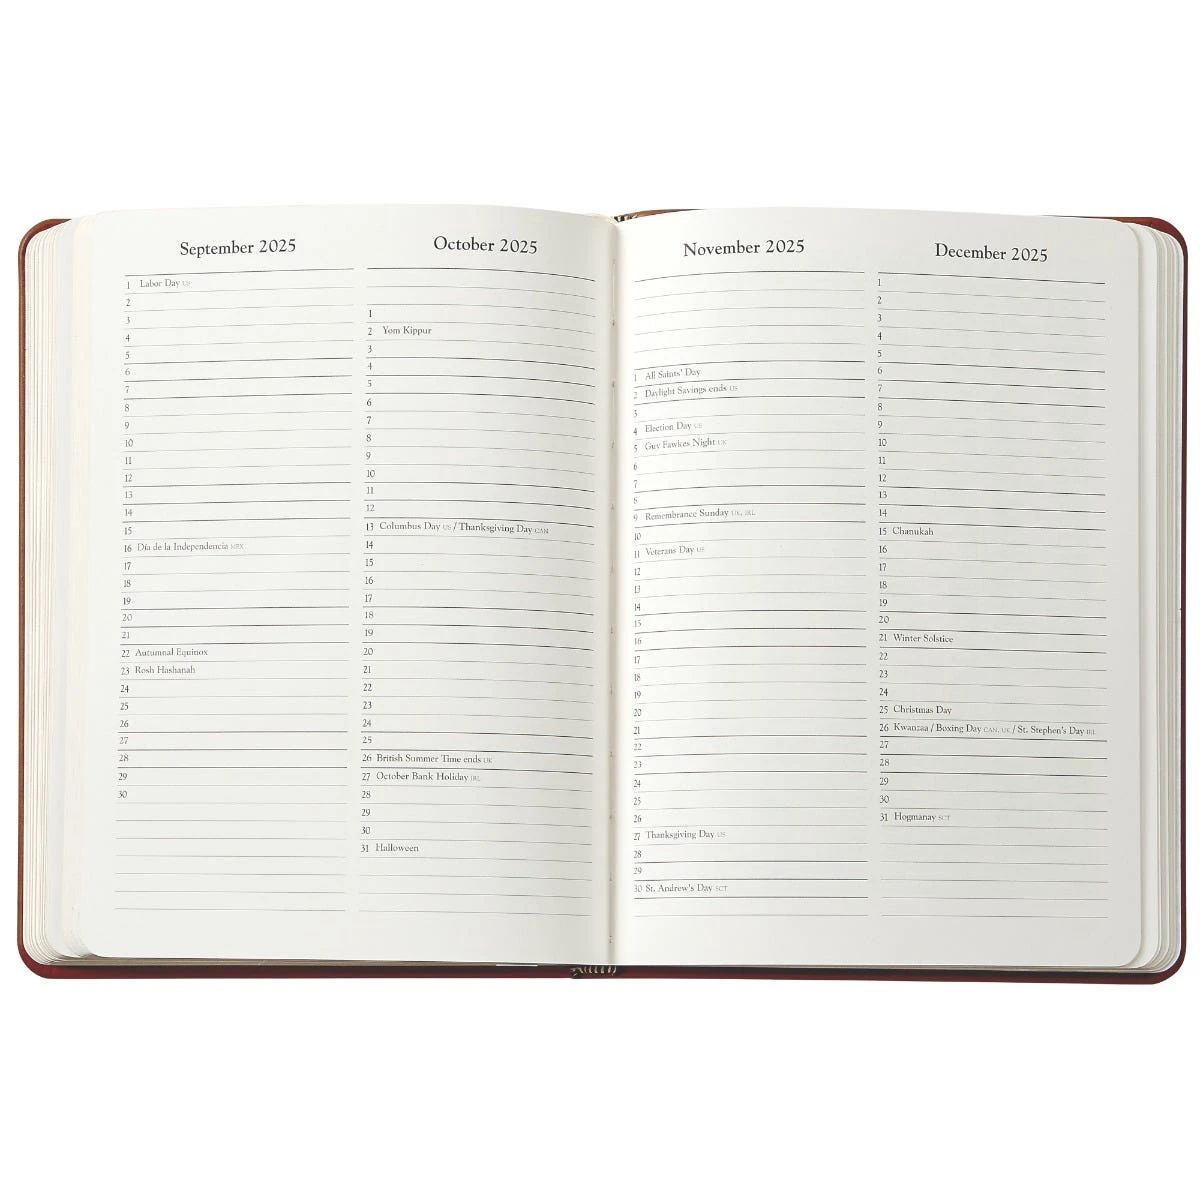 September 2025
1 Labor Day US
2
3
4
5
6
7
8
9
10
11
12
13
14
15
16 Día de la Independencia MEX
17
18
19
20
21
22 Autumnal Equinox
23 Rosh Hashanah
24
25
26
27
28
29
30
October 2025
1
2 Yom Kippur
3
4
5
6
7
8
9
10
11
12
13 Columbus Day US / Thanksgiving Day CAN
14
15
16
17
18
19
20
21
22
23
24
25
26 British Summer Time ends UK
27 October Bank Holiday IRL
28
29
30
31 Halloween
November 2025
1 All Saints' Day
2 Daylight Savings ends US
3
4 Election Day US
5 Guy Fawkes Night UK
6
7
8
9 Remembrance Sunday UK, IRL
10
11 Veterans Day US
12
13
14
15
16
17
18
19
20
21
22
23
24
25
26
27 Thanksgiving Day US
28
29
30 St. Andrew's Day SCT
December 2025
1
2
3
4
5
6
7
8
9
10
11
12
13
14
15 Chanukah
16
17
18
19
20
21 Winter Solstice
22
23
24
25 Christmas Day
26 Kwanzaa / Boxing Day CAN, UK / St. Stephen's Day IRL
27
28
29
30
31 Hogmanay SCT